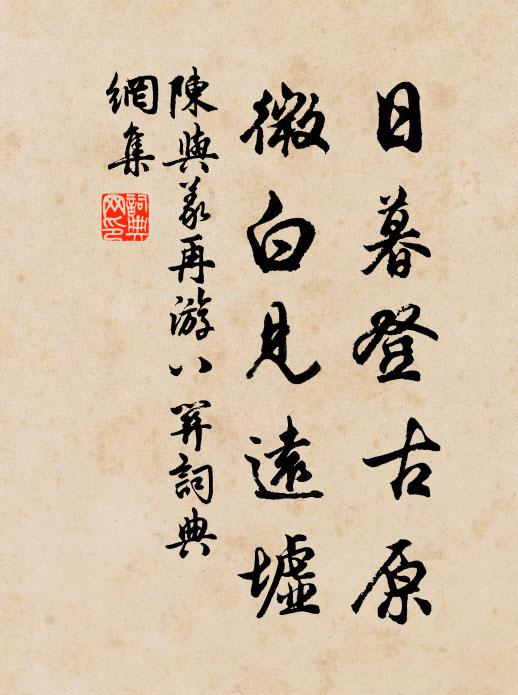 日暮登古原
微白見遠墟
陳與義再游八關詞典
網集
詞典網印